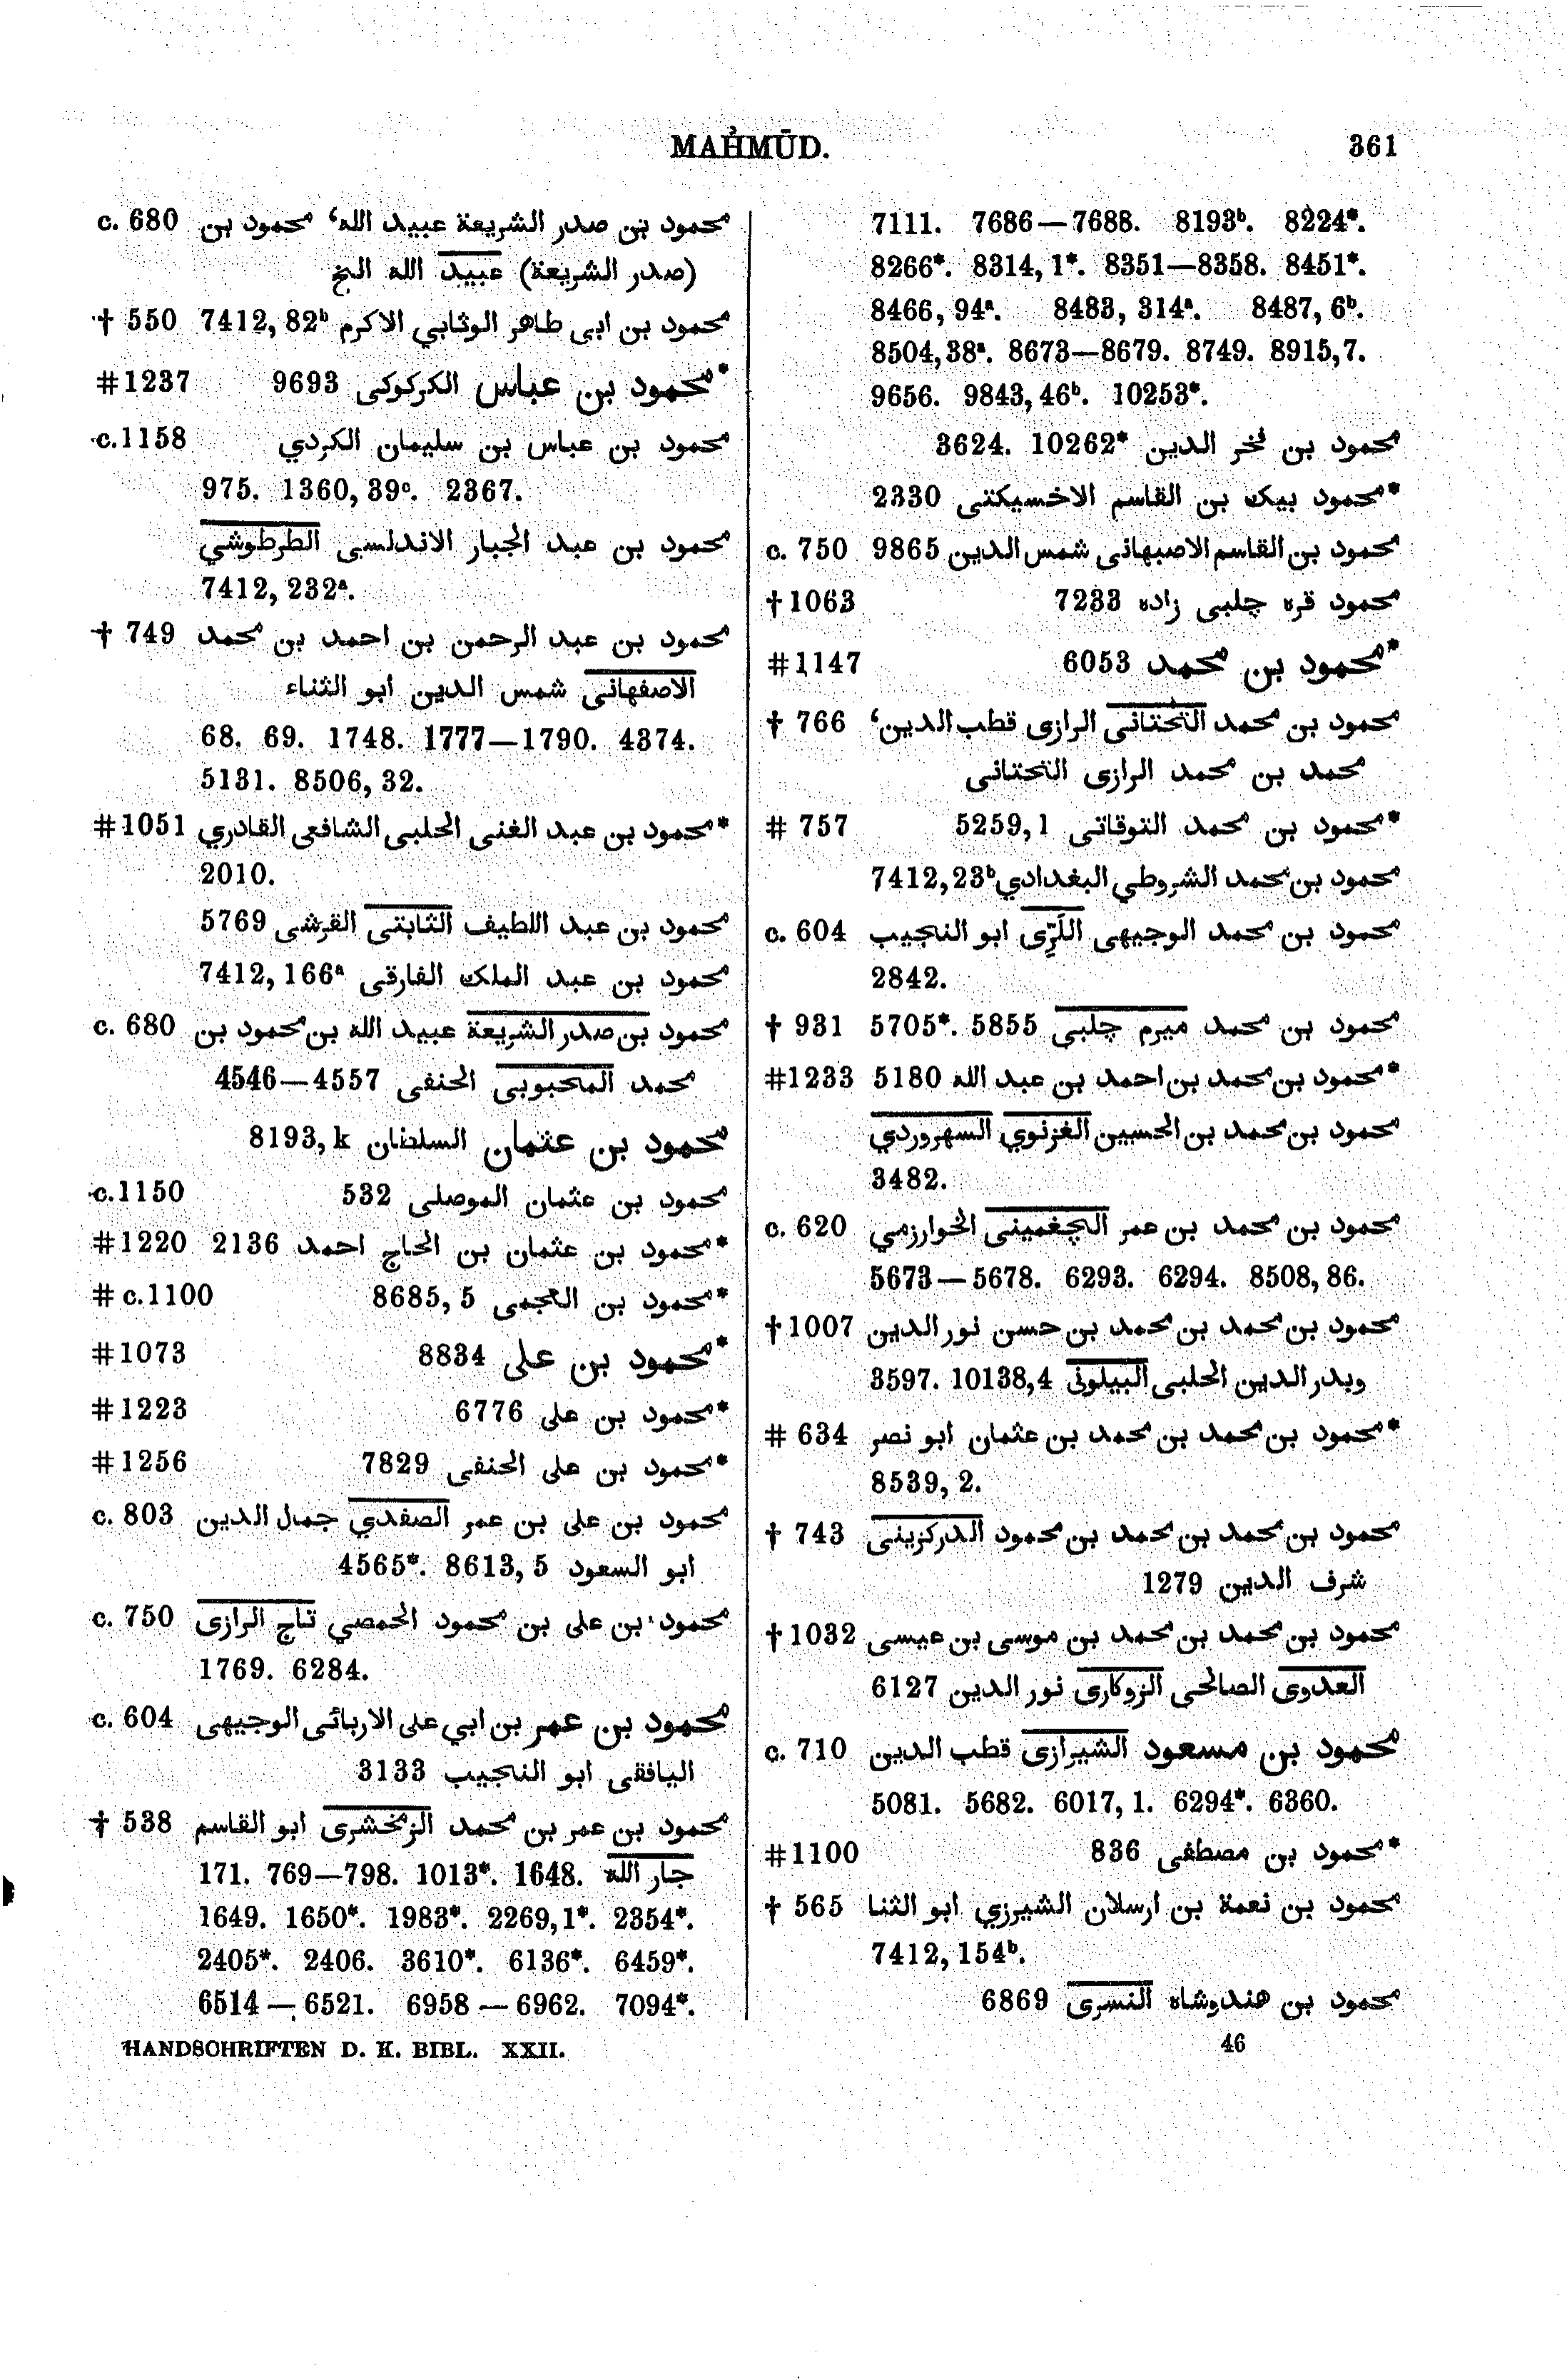 MAḢMŪD.
361
محمود بن صدر الشريعة عبيد الله، محمود بن c. 680
(صدر الشريعة) عبيد الله الخ
محمود بن ابى طاهر الوثابي الاكرم 7412, 82ᵇ † 550
*محمود بن عباس الكركوكى 9693 #1237
محمود بن عباس بن سليمان الكردي c.1158
975. 1360, 39ᶜ. 2367.
محمود بن عبد الجبار الاندلسى الطرطوشي
7412, 232ᵃ.
محمود بن عبد الرحمن بن احمد بن محمد † 749
الاصفهانى شمس الدين ابو الثناء
68. 69. 1748. 1777—1790. 4374.
5131. 8506, 32.
*محمود بن عبد الغنى الحلبى الشافعى القادري #1051
2010.
محمود بن عبد اللطيف الثابتى القرشى 5769
محمود بن عبد الملك الفارقى 7412, 166ᵃ
محمود بن صدر الشريعة عبيد الله بن محمود بن c. 680
محمد المحبوبى الحنفى 4546—4557
محمود بن عثمان السلطان 8193, k
محمود بن عثمان الموصلى 532 c.1150
*محمود بن عثمان بن الحاج احمد 2136 #1220
*محمود بن العجمى 8685, 5 # c.1100
*محمود بن على 8834 #1073
*محمود بن على 6776 #1223
*محمود بن على الحنفى 7829 #1256
محمود بن على بن عمر الصفدي جمال الدين c. 803
ابو السعود 4565*. 8613, 5
محمود بن على بن محمود الحمصي تاج الرازى c. 750
1769. 6284.
محمود بن عمر بن ابي على الاربائى الوجيهى c. 604
اليافقى ابو النجيب 3133
محمود بن عمر بن محمد الزمخشرى ابو القاسم † 538
جار الله 171. 769—798. 1013*. 1648.
1649. 1650*. 1983*. 2269,1*. 2354*.
2405*. 2406. 3610*. 6136*. 6459*.
6514 — 6521. 6958 — 6962. 7094*.
HANDSCHRIFTEN D. K. BIBL. XXII.
7111. 7686—7688. 8193ᵇ. 8224*.
8266*. 8314, 1*. 8351—8358. 8451*.
8466, 94ᵃ. 8483, 314ᵃ. 8487, 6ᵇ.
8504, 38ᵃ. 8673—8679. 8749. 8915,7.
9656. 9843, 46ᵇ. 10253*.
محمود بن فخر الدين 3624. 10262*
*محمود بيك بن القاسم الاخسيكتى 2330
محمود بن القاسم الاصبهانى شمس الدين 9865 c. 750
محمود قره چلبى زاده 7233 †1063
*محمود بن محمد 6053 #1147
محمود بن محمد التحتانى الرازى قطب الدين، † 766
محمد بن محمد الرازى التحتانى
*محمود بن محمد التوقاتى 5259,1 # 757
محمود بن محمد الشروطي البغدادي 7412,23ᵇ
محمود بن محمد الوجيهى اللَرِّى ابو النجيب c. 604
2842.
محمود بن محمد ميرم چلبى 5705*. 5855 † 931
*محمود بن محمد بن احمد بن عبد الله 5180 #1233
محمود بن محمد بن الحسين الغزنوي السهروردي
3482.
محمود بن محمد بن عمر الچغمينى الخوارزمي c. 620
5673—5678. 6293. 6294. 8508, 86.
محمود بن محمد بن محمد بن حسن نور الدين †1007
وبدر الدين الحلبى البيلونى 3597. 10138,4
*محمود بن محمد بن محمد بن عثمان ابو نصر # 634
8539, 2.
محمود بن محمد بن محمد بن محمود الدركزينى † 743
شرف الدين 1279
محمود بن محمد بن محمد بن موسى بن عيسى †1032
العدوى الصالحى الزوكارى نور الدين 6127
محمود بن مسعود الشيرازى قطب الدين c. 710
5081. 5682. 6017, 1. 6294*. 6360.
*محمود بن مصطفى 836 #1100
محمود بن نعمة بن ارسلان الشيرزي ابو الثنا † 565
7412, 154ᵇ.
محمود بن هندوشاه النسرى 6869
46